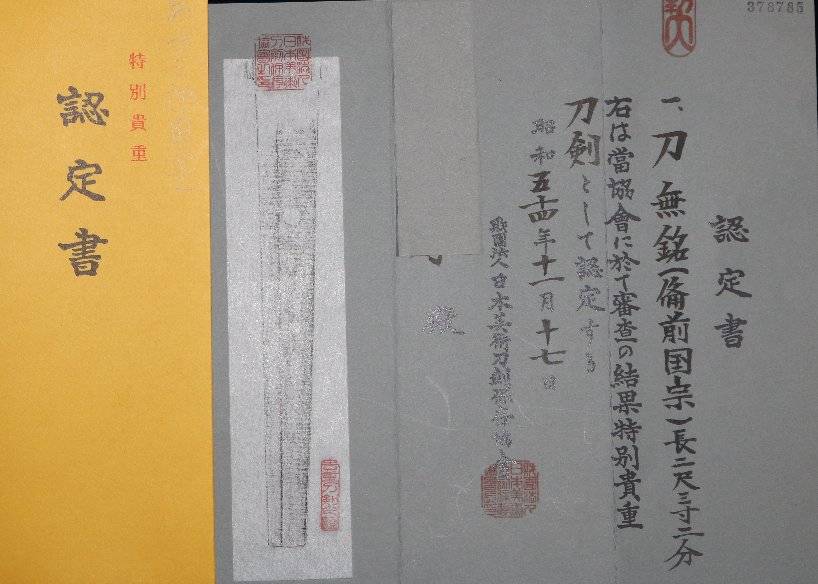 378785
認定書
一、刀 無銘(備前国宗)長二尺三寸二分
右は當協會に於て審査の結果特別貴重
刀剣として認定する
昭和五十四年十一月十七日
財團法人日本美術刀剣保存協會
殿
特別貴重
認定書